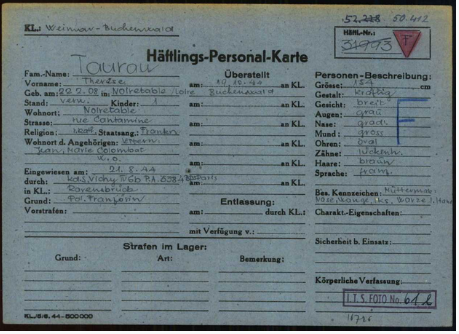 KL.: Weimar-Buchenwald
52.228 50.412
Häftl.-Nr.:
31773
T
Häftlings-Personal-Karte
Taurau
Fam.-Name:
Vorname: Therèse
Geb. am: 22.2.08 in Nolretable/Loire
Stand: verw. Kinder: 1
Wohnort: Nolretable
Strasse: rue Cantamine
Religion: Staatsang.: Franken
Wohnort d. Angehörigen:
Jean, Marie Colombat
w.o.
Eingewiesen am: 21.8.44
durch: Kds. Vichy
in KL.: Ravensbrück
Grund: Pol. Französin
Vorstrafen:
Überstellt
am: an KL.
Buchenwald
am: an KL.
am: an KL.
am: an KL.
am: an KL.
am: an KL.
Entlassung:
am: durch KL.:
mit Verfügung v.:
Personen-Beschreibung:
Grösse: 154 cm
Gestalt: kräftig
Gesicht: breit
Augen: grau
Nase: grade
Mund: gross
Ohren: oval
Zähne:
Haare: braun
Sprache: franz.
F
Bes. Kennzeichen: Muttermal
Charakt.-Eigenschaften:
Sicherheit b. Einsatz:
Körperliche Verfassung:
Strafen im Lager:
Grund: Art: Bemerkung:
I.T.S. FOTO No. 612
KL./5/6.44-500000